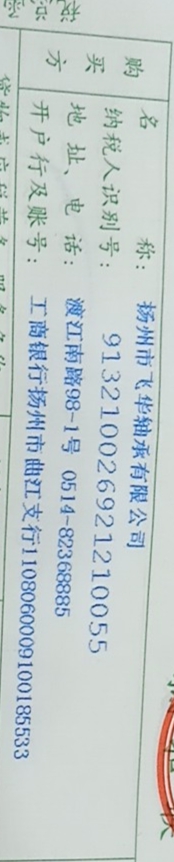 购买方
名　　　称：扬州市飞华轴承有限公司
纳税人识别号：913210026921210055
地 址、电 话：渡江南路98-1号 0514-82368885
开户行及账号：工商银行扬州市曲江支行1108060009100185533